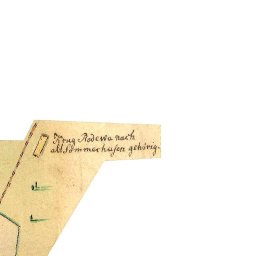 Krug Rodewa nach
alt Sommerhusen gehörig.